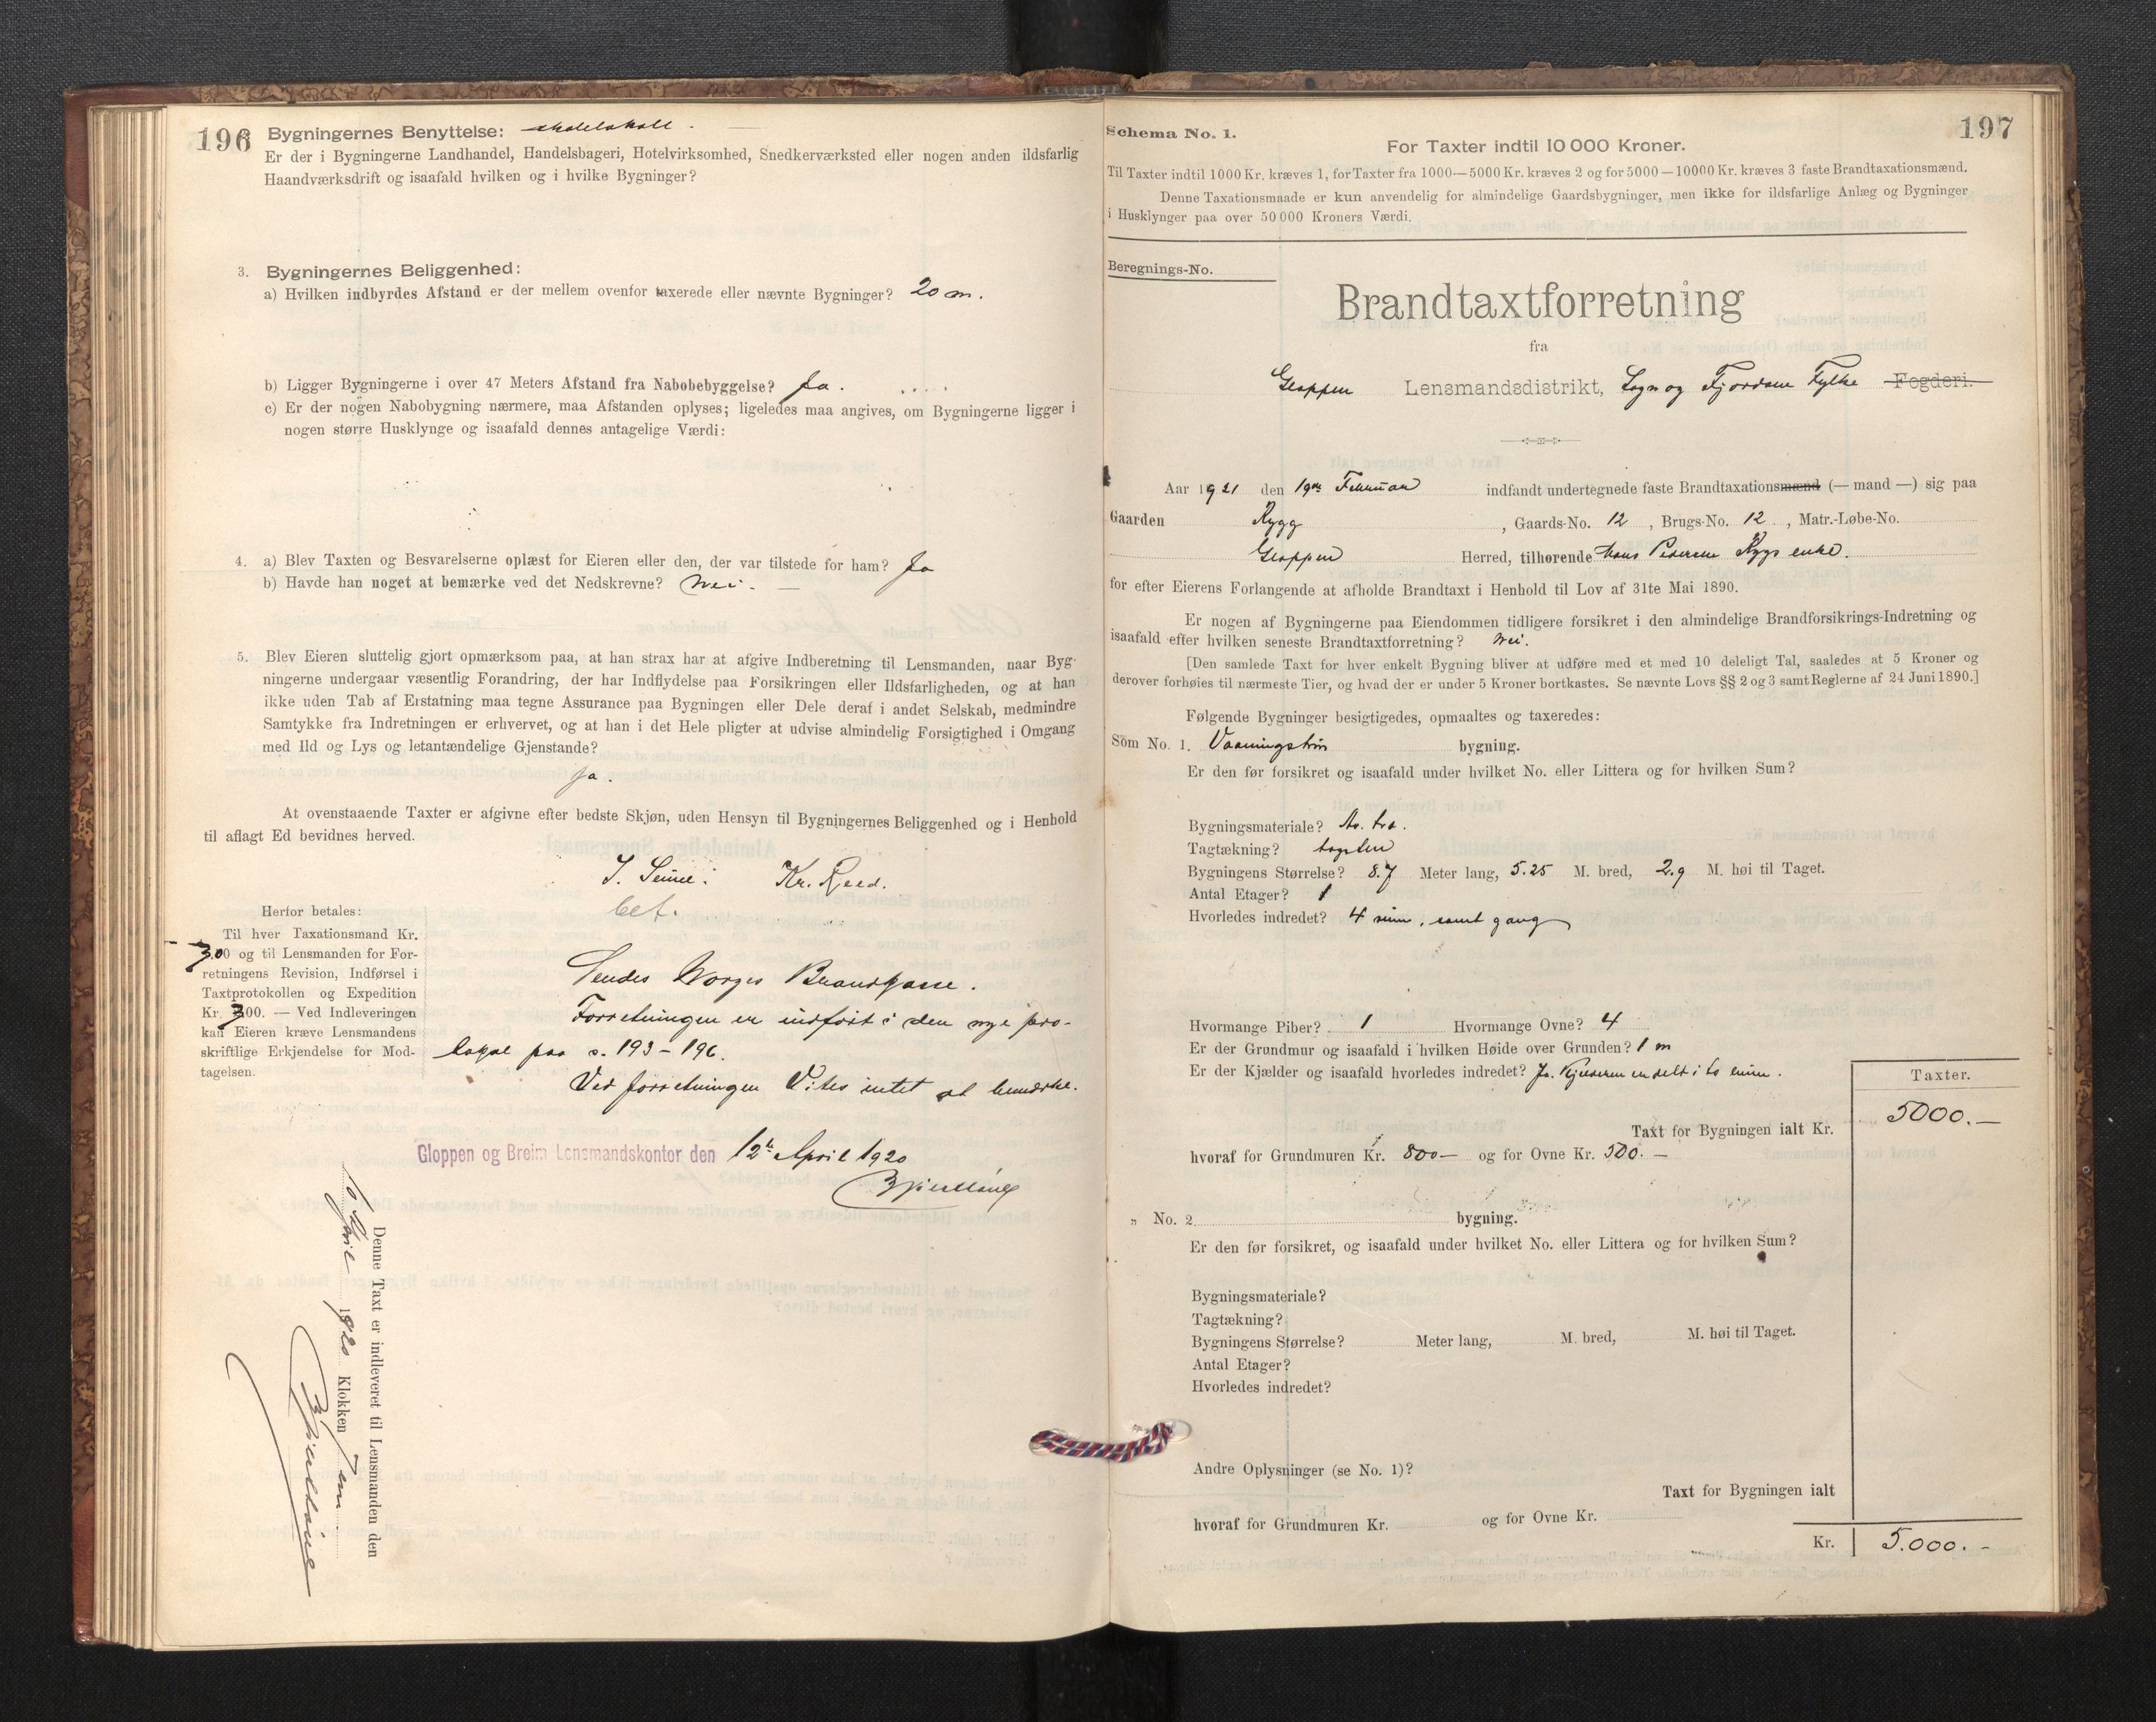 196
Bygningernes Benyttelse: skolelokale.
Er der i Bygningerne Landhandel, Handelsbageri, Hotelvirksomhed, Snedkerværksted eller nogen anden ildsfarlig
Haandværksdrift og isaafald hvilken og i hvilke Bygninger?
3. Bygningernes Beliggenhed:
a) Hvilken indbyrdes Afstand er der mellem ovenfor taxerede eller nævnte Bygninger? 20 m.
b) Ligger Bygningerne i over 47 Meters Afstand fra Nabobebyggelse? Ja.
c) Er der nogen Nabobygning nærmere, maa Afstanden oplyses; ligeledes maa angives, om Bygningerne ligger i
nogen større Husklynge og isaafald dennes antagelige Værdi:
4. a) Blev Taxten og Besvarelserne oplæst for Eieren eller den, der var tilstede for ham? Ja
b) Havde han noget at bemærke ved det Nedskrevne? Nei. —
5. Blev Eieren sluttelig gjort opmærksom paa, at han strax har at afgive Indberetning til Lensmanden, naar Byg-
ningerne undergaar væsentlig Forandring, der har Indflydelse paa Forsikringen eller Ildsfarligheden, og at han
ikke uden Tab af Erstatning maa tegne Assurance paa Bygningen eller Dele deraf i andet Selskab, medmindre
Samtykke fra Indretningen er erhvervet, og at han i det Hele pligter at udvise almindelig Forsigtighed i Omgang
med Ild og Lys og letantændelige Gjenstande?
Ja.
At ovenstaaende Taxter er afgivne efter bedste Skjøn, uden Hensyn til Bygningernes Beliggenhed og i Henhold
til aflagt Ed bevidnes herved.
Kr. Reed.
bet.
Herfor betales:
Til hver Taxationsmand Kr.
3.00 og til Lensmanden for For-
retningens Revision, Indførsel i
Taxtprotokollen og Expedition
Kr. 3.00. — Ved Indleveringen
kan Eieren kræve Lensmandens
skriftlige Erkjendelse for Mod-
tagelsen.
Sendes Norges Brandkasse.
Forretningen er indført i den nye pro-
tokol paa s. 193 – 196.
Ved forretningen vites intet at bemerke.
Gloppen og Breim Lensmandskontor den 12te April 1920
Denne Taxt er indleveret til Lensmanden den
10 April 1920 Klokken
197
Schema No. 1.
For Taxter indtil 10 000 Kroner.
Til Taxter indtil 1000 Kr. kræves 1, for Taxter fra 1000—5000 Kr. kræves 2 og for 5000—10000 Kr. kræves 3 faste Brandtaxationsmænd.
Denne Taxationsmaade er kun anvendelig for almindelige Gaardsbygninger, men ikke for ildsfarlige Anlæg og Bygninger
i Husklynger paa over 50 000 Kroners Værdi.
Beregnings-No.
Brandtaxtforretning
fra
Gloppen Lensmandsdistrikt, Sogn og Fjordane Fylke Fogderi.
Aar 1921 den 19de Februar indfandt undertegnede faste Brandtaxationsmænd (— mand —) sig paa
Gaarden Rygg, Gaards-No. 12, Brugs-No. 12, Matr.-Løbe-No.
Gloppen Herred, tilhørende Hans Pedersen Rygs enke.
for efter Eierens Forlangende at afholde Brandtaxt i Henhold til Lov af 31te Mai 1890.
Er nogen af Bygningerne paa Eiendommen tidligere forsikret i den almindelige Brandforsikrings-Indretning og
isaafald efter hvilken seneste Brandtaxtforretning? Nei.
[Den samlede Taxt for hver enkelt Bygning bliver at udføre med et med 10 deleligt Tal, saaledes at 5 Kroner og
derover forhøies til nærmeste Tier, og hvad der er under 5 Kroner bortkastes. Se nævnte Lovs §§ 2 og 3 samt Reglerne af 24 Juni 1890.]
Følgende Bygninger besigtigedes, opmaaltes og taxeredes:
Som No. 1. Vaaningshus bygning.
Er den før forsikret og isaafald under hvilket No. eller Littera og for hvilken Sum?
Bygningsmateriale? Av træ.
Tagtækning? tagsten
Bygningens Størrelse? 8.7 Meter lang, 5.25 M. bred, 2.9 M. høi til Taget.
Antal Etager? 1
Hvorledes indredet? 4 rum, samt gang
Hvormange Piber? 1 Hvormange Ovne? 4
Er der Grundmur og isaafald i hvilken Høide over Grunden? 1 m
Er der Kjælder og isaafald hvorledes indredet? Ja. Kjelderen er delt i to rum.
Taxter.
Taxt for Bygningen ialt Kr. 5000.—
hvoraf for Grundmuren Kr. 800— og for Ovne Kr. 500.—
„ No. 2 bygning.
Er den før forsikret, og isaafald under hvilket No. eller Littera og for hvilken Sum?
Bygningsmateriale?
Tagtækning?
Bygningens Størrelse? Meter lang, M. bred, M. høi til Taget.
Antal Etager?
Hvorledes indredet?
Andre Oplysninger (se No. 1)?
Taxt for Bygningen ialt
hvoraf for Grundmuren Kr. og for Ovne Kr.
Kr. 5.000.-